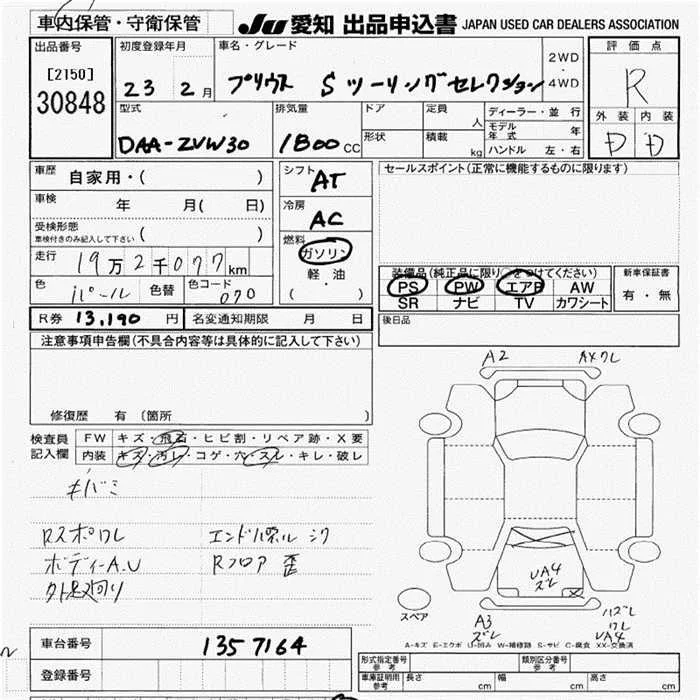 車内保管・守衛保管
JU 愛知 出品申込書 JAPAN USED CAR DEALERS ASSOCIATION
出品番号
[2150]
30848
初度登録年月
23 2月
車名・グレード
プリウス Sツーリングセレクション
2WD
・
4WD
評価点
R
外装 内装
D D
型式
DAA-ZVW30
排気量
1800 CC
ドア
形状
定員
人
積載
kg
ディーラー・並行
モデル年式 年
ハンドル 左・右
車歴 自家用・( )
車検 年 月( 日)
受検形態
車検付きのみ記入して下さい ( )
走行 19万2千077km
色 パール 色替 色コード 070
シフト
AT
冷房
AC
燃料
ガソリン
軽・油
( ・ )
セールスポイント(正常に機能するものに限ります)
装備品(純正品に限り○をつけてください)
PS PW エアB AW
SR ナビ TV カワシート
新車保証書
有・無
R券 13,190 円 名変通知期限 月 日
後日品
注意事項申告欄(不具合内容等は具体的に記入して下さい)
修復歴 有 (箇所
検査員
記入欄
FW キズ・飛石・ヒビ割・リペア跡・X要
内装 キズ・汚レ・コゲ・穴・スレ・キレ・破レ
キバミ
Rスポワレ エンドパネルシワ
ボディーA.U Rフロア歪
外足廻り
A2 AXワレ
UA4
ズレ
スペア
A3
ズレ
ハズレ
ワレ
UA4
A-キズ E-エクボ U-凹み W-補修跡 S-サビ C-腐食 XX-交換済
車台番号 1357164
登録番号
形式指定番号
参考
類別区分番号
参考
車庫証明用
参考
長さ cm 幅 cm 高さ cm